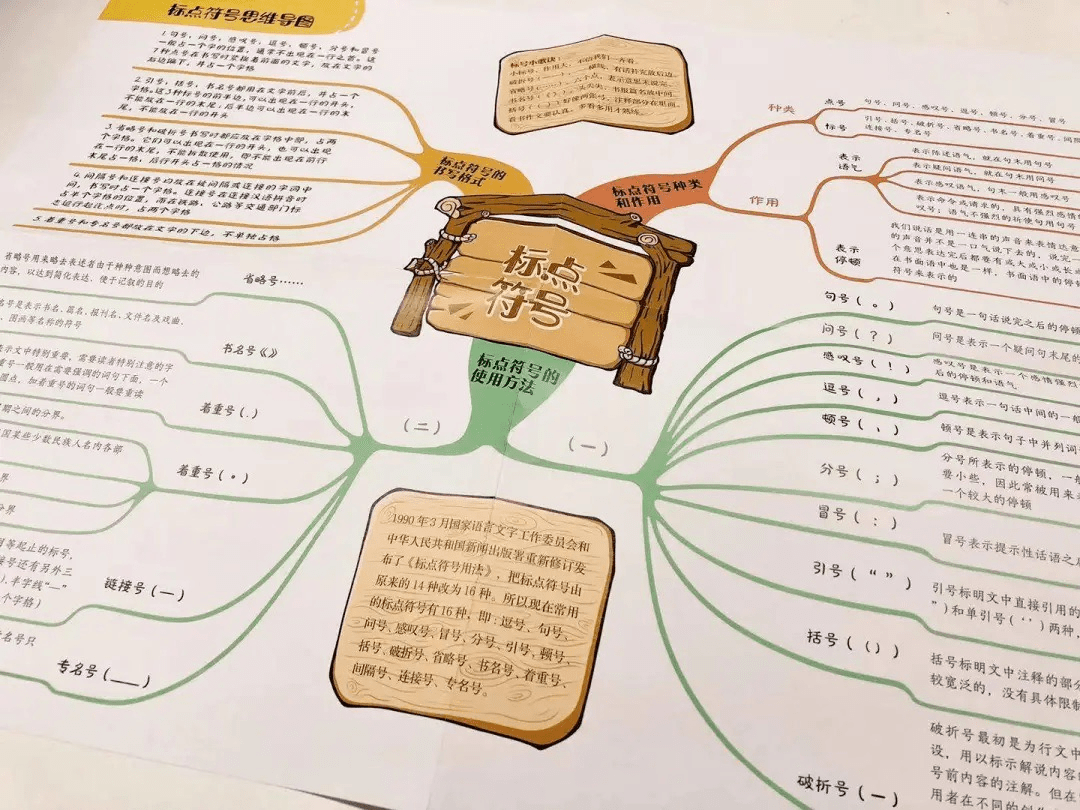 标点符号思维导图
1.句号、问号、感叹号、逗号、顿号、分号和冒号
一般占一个字的位置,通常不出现在一行之首。这
7种点号在书写时紧挨着前面的文字,放在文字的
右边偏下,并占一个字格
2.引号、括号、书名号都用在文字前后,并占一个
字格。这3种标号的前半边,可以出现在一行的开头,
不能放在一行的末尾;后半边可以出现在一行的末
尾,不能放在一行的开头
3.省略号和破折号书写时都应放在字格中部,占两
个字格。它们可以出现在一行的开头,也可以出现
在一行的末尾,不能拆散使用,即不能出现在前行
末尾占一格,后行开头占一格的情况
4.间隔号和连接号均放在被间隔或连接的字词中
间,书写时占一个字格。连接号在连接汉语拼音时
占半个字格的位置,而在铁路、公路等交通部门标
志运行起讫点时,占两个字格
5.着重号和专名号都放在文字的下边,不单独占格
标点符号的
书写格式
标号小歌诀:
小标号,作用大,
破折号(——),一横线,有话补充放后边。
省略号(……),六个点,表示意思未说完。
书名号(《》),尖尖头,书报篇名放中间。
括号(()),好像两张弓,注释部分在里面。
看书作文要认真,多看多用才熟练。
标点符号种类
和作用
种类
点号
句号、问号、感叹号、逗号、顿号、分号、冒号
标号
引号、括号、破折号、省略号、书名号、着重号、间隔
连接号、专名号
作用
表示
语气
表示陈述语气,就在句末用句号
表示疑问语气,就在句末用问号
表示感叹语气,句末一般用感叹号
表示命令或请求的,具有强烈感情
叹号;语气不强烈的祈使句用句号
表示
停顿
我们说话是用一连串的声音来表情达意
的声音并不是一口气说下去的,说完一
个意思表达完后都要有或大或小或长或
在书面语中也是一样,书面语中的停顿
符号来表示的
标点
符号
标点符号的
使用方法
(一)
(二)
句号(。)
句号是一句话说完之后的停顿
问号(?)
问号是表示一个疑问句末尾的
感叹号(!)
感叹号是表示一个感情强烈
后的停顿和语气
逗号(,)
逗号表示一句话中间的一般
顿号(、)
顿号是表示句子中并列词
分号(;)
分号所表示的停顿,一般
要小些,因此常被用来
一个较大的停顿
冒号(:)
冒号表示提示性话语之后
引号(“”)
引号标明文中直接引用的
”)和单引号(‘’)两种,
括号(())
括号标明文中注释的部分
较宽泛的,没有具体限制
破折号(—)
破折号最初是为行文中
设,用以标示解说内容
号前内容的注解。但在
用者在不同的
省略号……
省略号用来略去表述者由于种种意图而想略去的
内容,以达到简化表达、便于记叙的目的
书名号《》
名号是表示书名、篇名、报刊名、文件名及戏曲、
、图画等名称的符号
着重号(.)
表示文中特别重要,需要读者特别注意的字
重号一般用在需要强调的词句下面,一个
圆点,加着重号的词句一般要重读
着重号(•)
期之间的分界。
国某些少数民族人名内各部
界
分界
链接号(—)
目等起止的标号,
接号还有另外三
),半字线“–”
个字格)
专名号(___)
专名号只
1990年3月国家语言文字工作委员会和
中华人民共和国新闻出版署重新修订发
布了《标点符号用法》,把标点符号由
原来的14种改为16种。所以现在常用
的标点符号有16种,即:逗号、句号、
问号、感叹号、冒号、分号、引号、顿号、
括号、破折号、省略号、书名号、着重号、
间隔号、连接号、专名号。